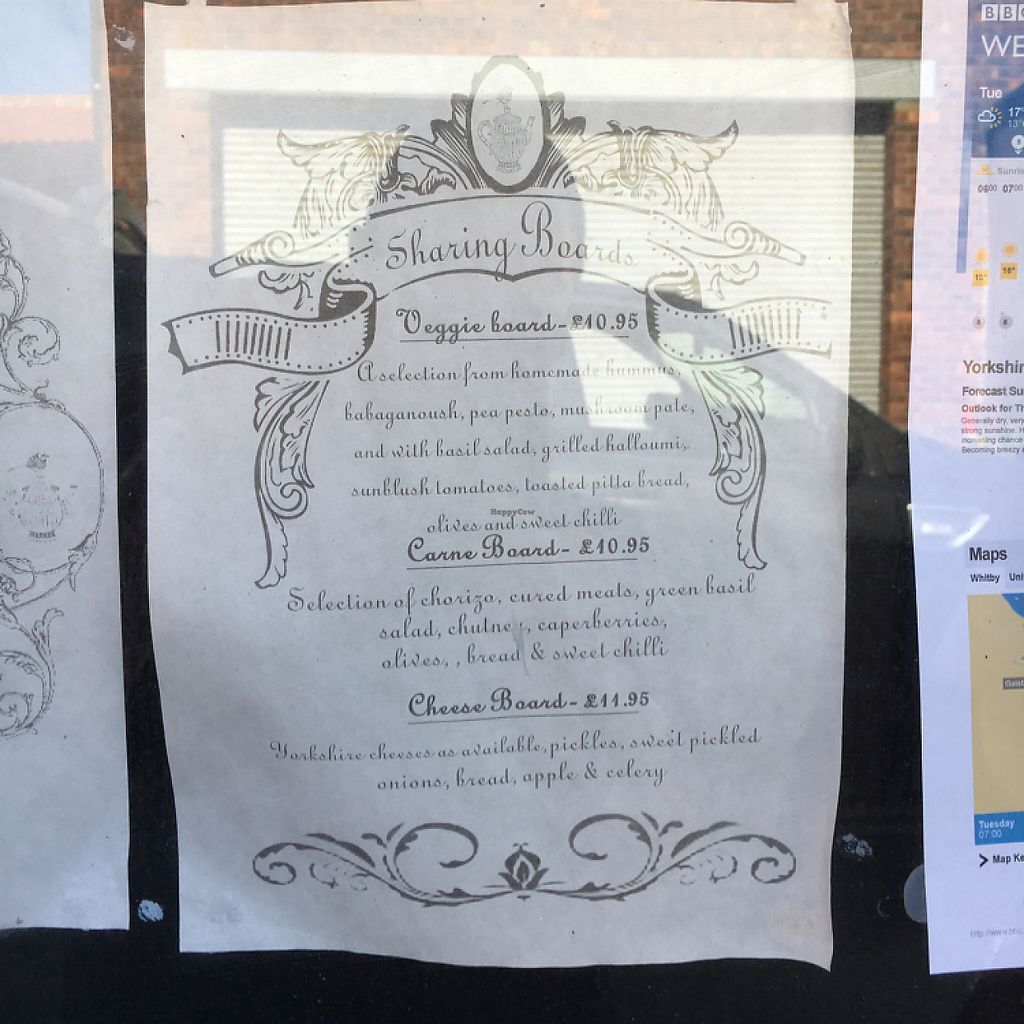 Sharing Boards
Veggie board - £10.95
A selection from homemade hummus,
babaganoush, pea pesto, mushroom pate,
and with basil salad, grilled halloumi,
sunblush tomatoes, toasted pitta bread,
HappyCow
olives and sweet chilli
Carne Board - £10.95
Selection of chorizo, cured meats, green basil
salad, chutney, caperberries,
olives, , bread & sweet chilli
Cheese Board - £11.95
Yorkshire cheeses as available, pickles, sweet pickled
onions, bread, apple & celery
BBC
WE
Tue
17°
13°
Sunris
0600 0700
15° 16°
Yorkshir
Forecast Su
Outlook for Th
Generally dry, very
strong sunshine. H
increasing chance
Becoming breezy a
Maps
Whitby Uni
Tuesday
07:00
Map Ke